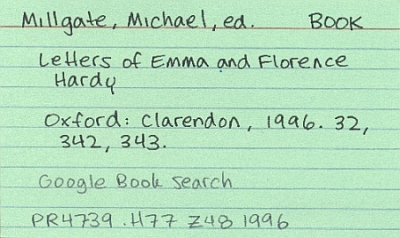 Millgate, Michael, ed. BOOK
Letters of Emma and Florence
Hardy
Oxford: Clarendon, 1996. 32,
342, 343.
Google Book search
PR4739.H77 Z48 1996